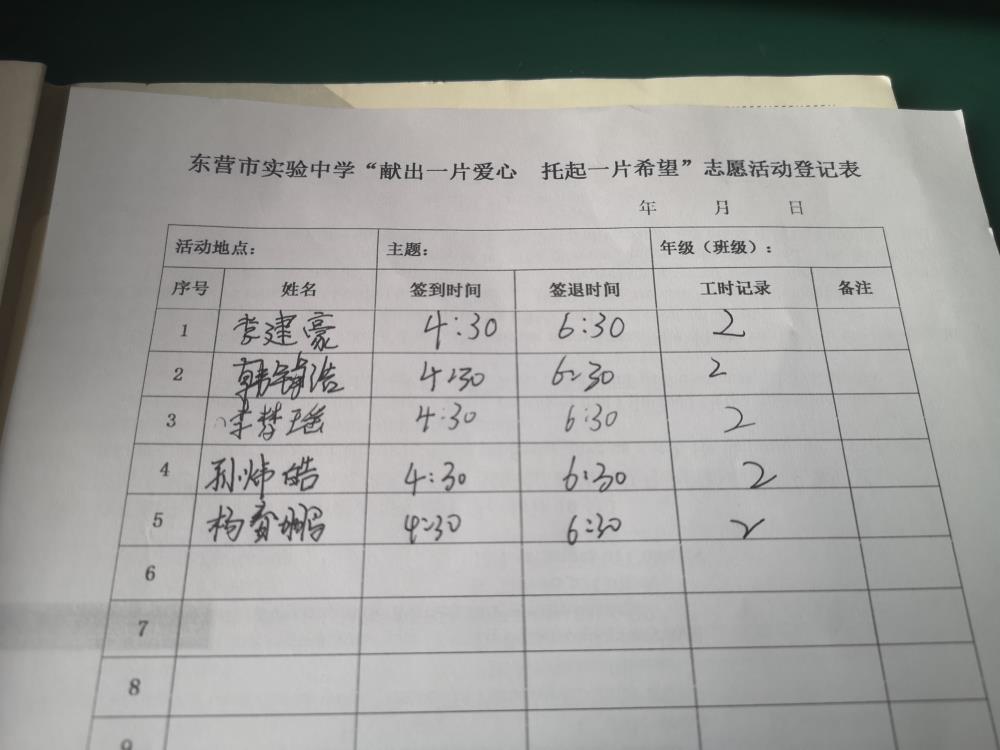 东营市实验中学“献出一片爱心 托起一片希望”志愿活动登记表
年 月 日
活动地点: 主题: 年级（班级）:
序号 姓名 签到时间 签退时间 工时记录 备注
1 李建豪 4:30 6:30 2
2 韩锦浩 4:30 6:30 2
3 李梦瑶 4:30 6:30 2
4 孙炜皓 4:30 6:30 2
5 杨鹏 4:30 6:30 2
6
7
8
9